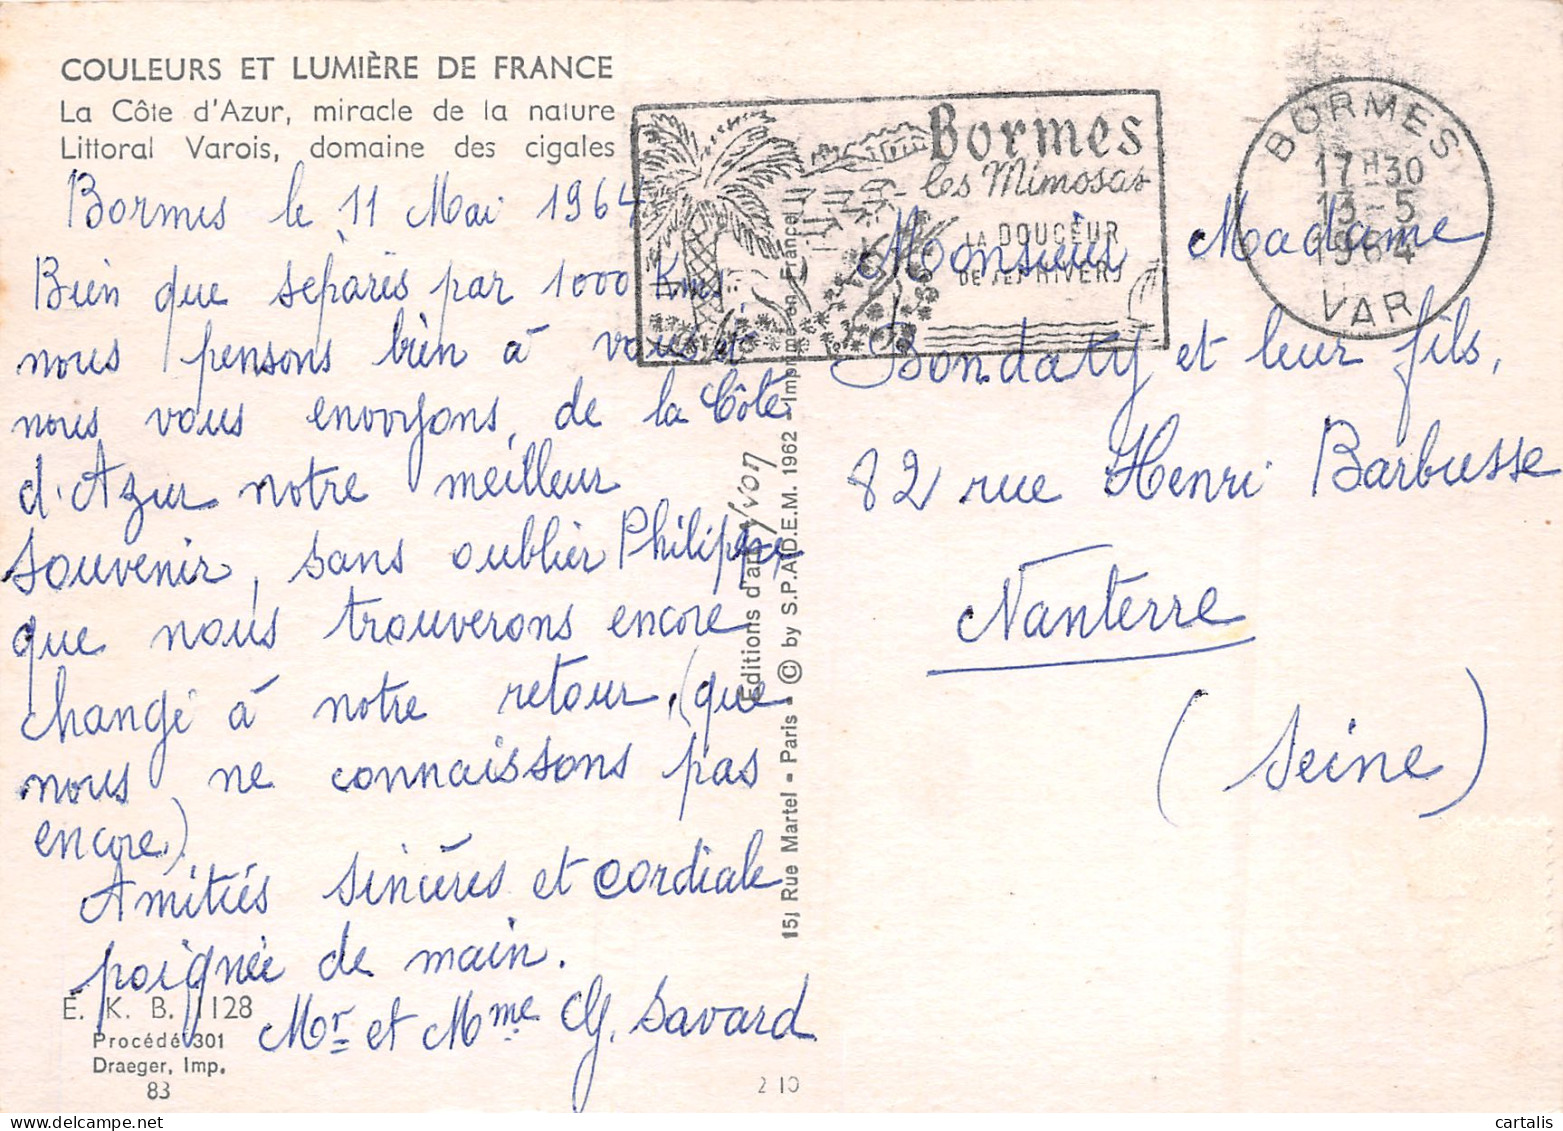 COULEURS ET LUMIÈRE DE FRANCE
La Côte d'Azur, miracle de la nature
Littoral Varois, domaine des cigales
Bormes le 11 Mai 1964
Bien que séparés par 1000 Kms,
nous pensons bien à vous et
nous vous envoyons, de la Côte
d'Azur notre meilleur
souvenir, sans oublier Philippe
que nous trouverons encore
changé à notre retour, (que
nous ne connaissons pas
encore.)
Amitiés sincères et cordiale
poignée de main.
Mr et Mme Cy. Savard
E. K. B. 1128
Procédé 301
Draeger, Imp.
83
Editions d'art Yvon
15, Rue Martel - Paris - © by S.P.A.D.E.M. 1962 - Imprimé en France
2 10
Bormes
les Mimosas
LA DOUCEUR
DE SES HIVERS
BORMES
17H30
13-5
1964
VAR
Monsieur Madame
Bondaty et leur fils,
82 rue Henri Barbusse
Nanterre
(Seine)
cartalis